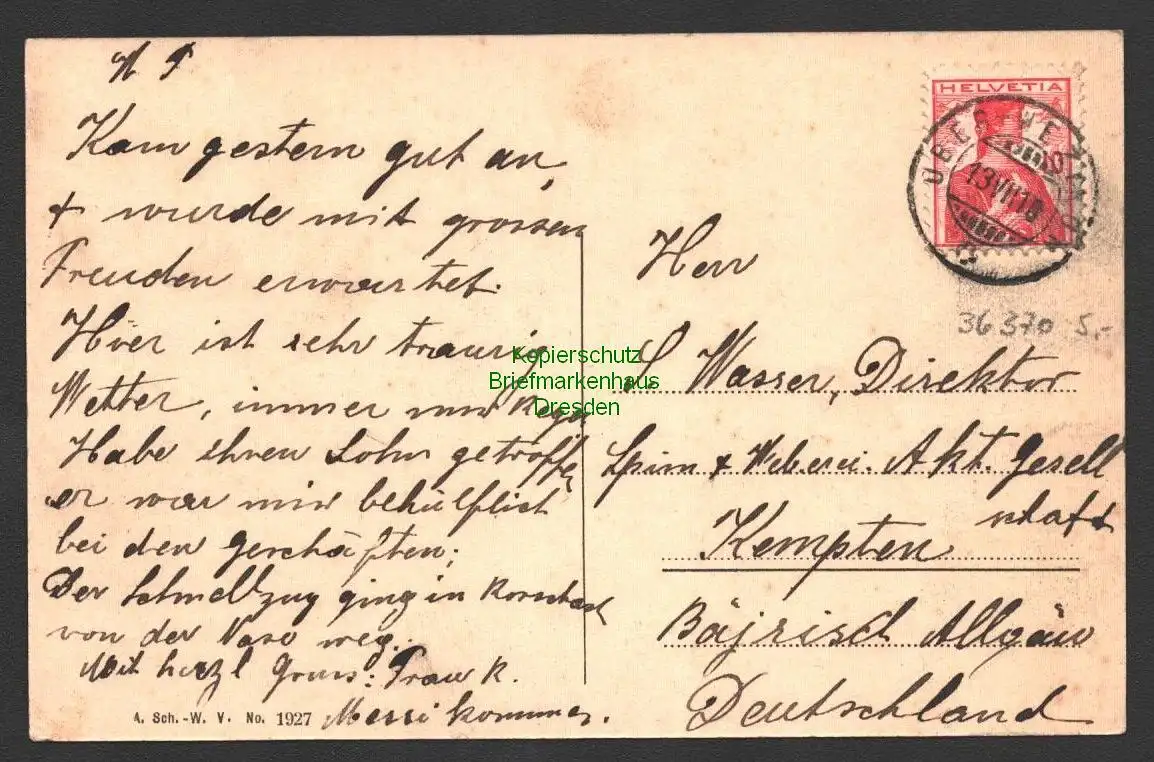 Kam gestern gut an,
+ wurde mit grossen
Freuden erwartet.
Hier ist sehr traurig
Wetter, immer nur Regen
Habe ihren Sohn getroffen
er war mir behülflich
bei den Geschäften;
Der Schnellzug ging in Rorschach
von der Nase weg.
Mit herzl Gruss: Frau R.
Messikommer.
A. Sch.-W. V. No. 1927
HELVETIA
13 VII 10
36370 5,-
Herr
Wasser, Direktor
Spinn & Weberei. Akt. Gesell
schaft
Kempten
Bajrisch Allgäu
Deutschland
Kopierschutz
Briefmarkenhaus
Dresden